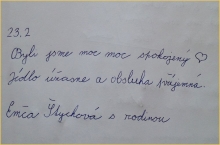 23.2
Byli jsme moc moc spokojený ♡
Jídlo úžasne a obsluha příjemná.
Emča Štychová s rodinou